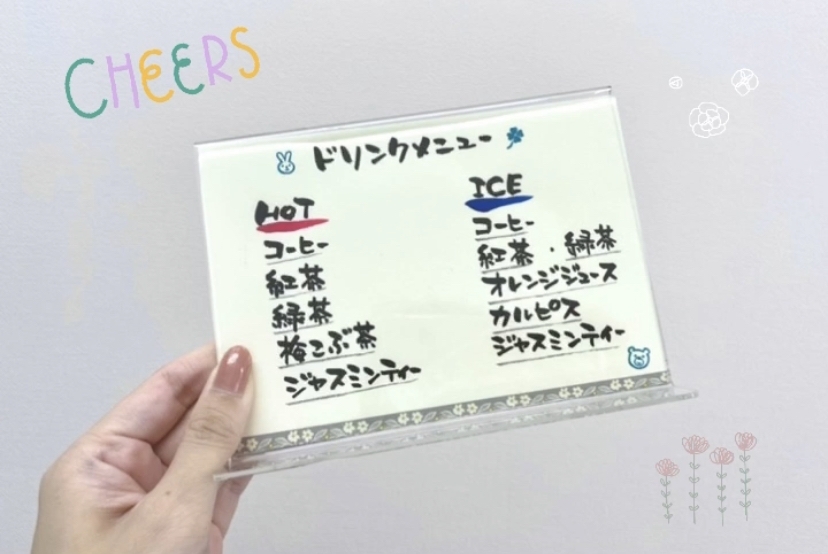 CHEERS
ドリンクメニュー
HOT
コーヒー
紅茶
緑茶
梅こぶ茶
ジャスミンティー
ICE
コーヒー
紅茶・緑茶
オレンジジュース
カルピス
ジャスミンティー